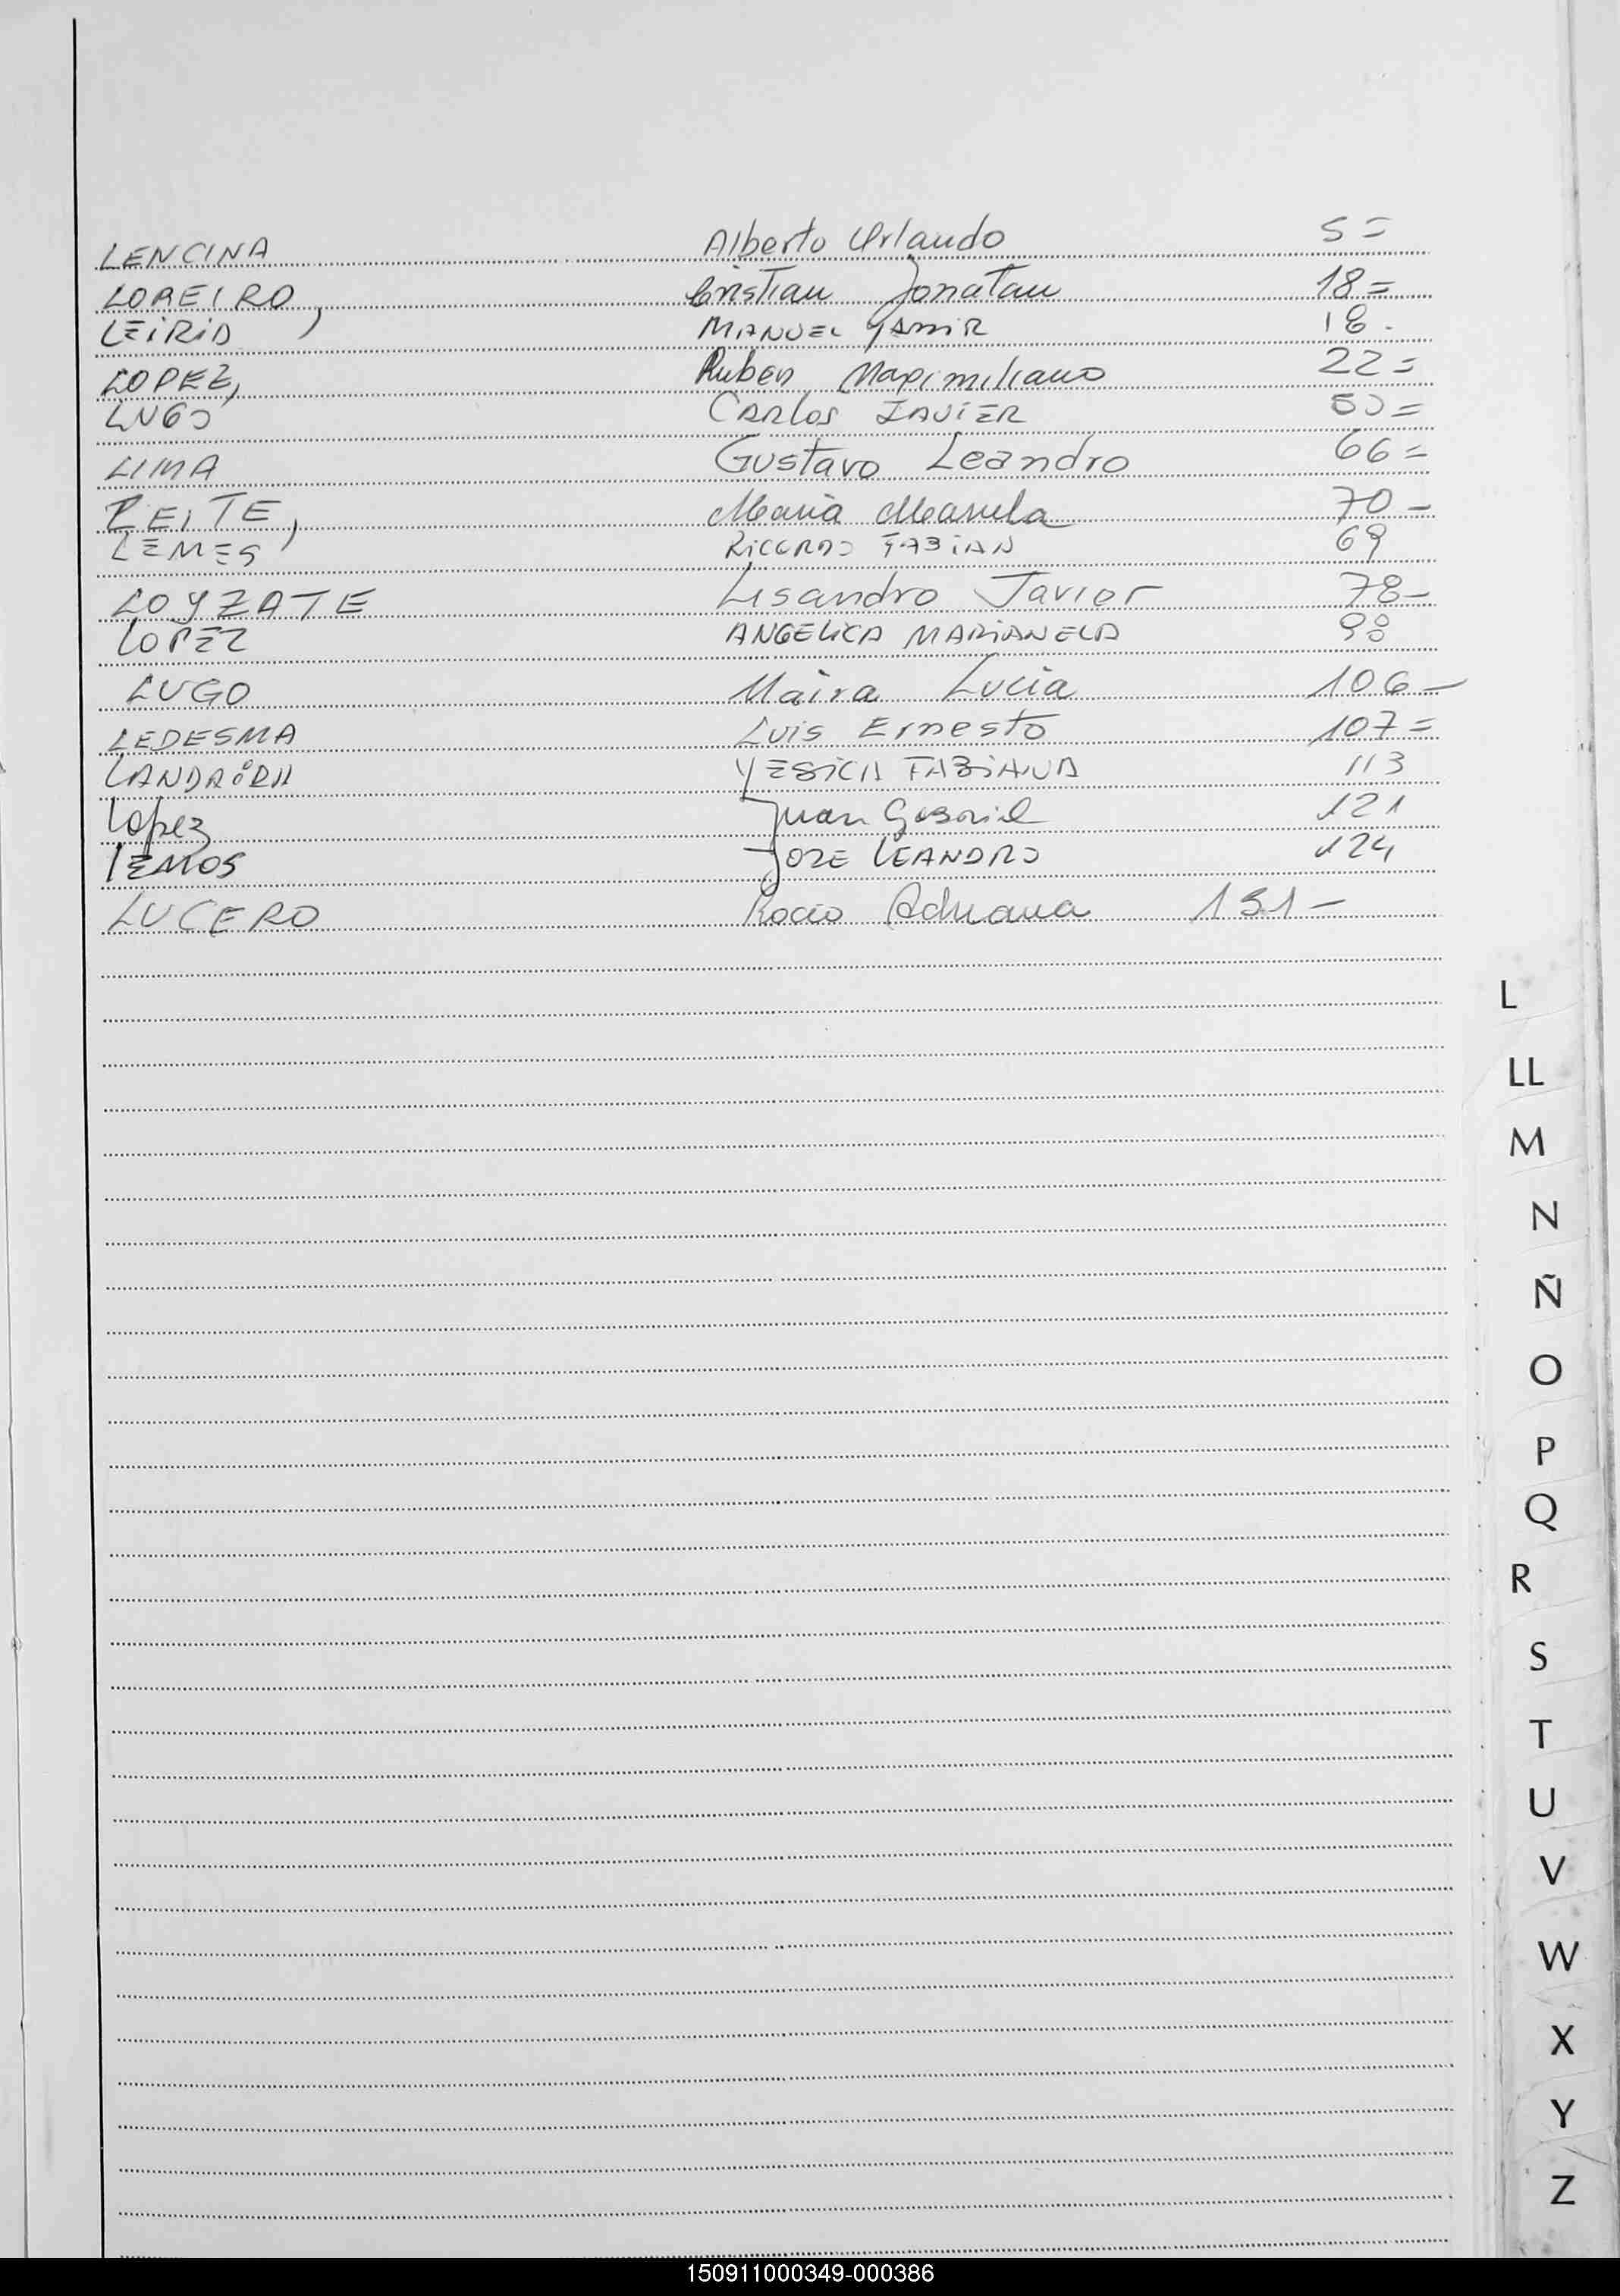 LENCINA Alberto Orlando 5=
LOREIRO, Cristian Jonatan 18=
LEiRiD MANUEL YAMiR 18.
LOPEZ, Ruben Maximiliano 22=
LUGO CARLOS JAViER 50=
LIMA Gustavo Leandro 66=
LEITE, Maria Marcela 70-
LEMES RiCARDO FABiAN 69
LOYZATE Lisandro Javier 78-
LOPEZ ANGELiCA MARiANELA 98
LUGO Maira Lucia 106-
LEDESMA Luis Ernesto 107=
YESiCA FABiANA 113
Lopez Juan Gabriel 121
LEMOS JOSE LEANDRO 124
LUCERO Rocio Adriana 131-
L
LL
M
N
Ñ
O
P
Q
R
S
T
U
V
W
X
Y
Z
150911000349-000386